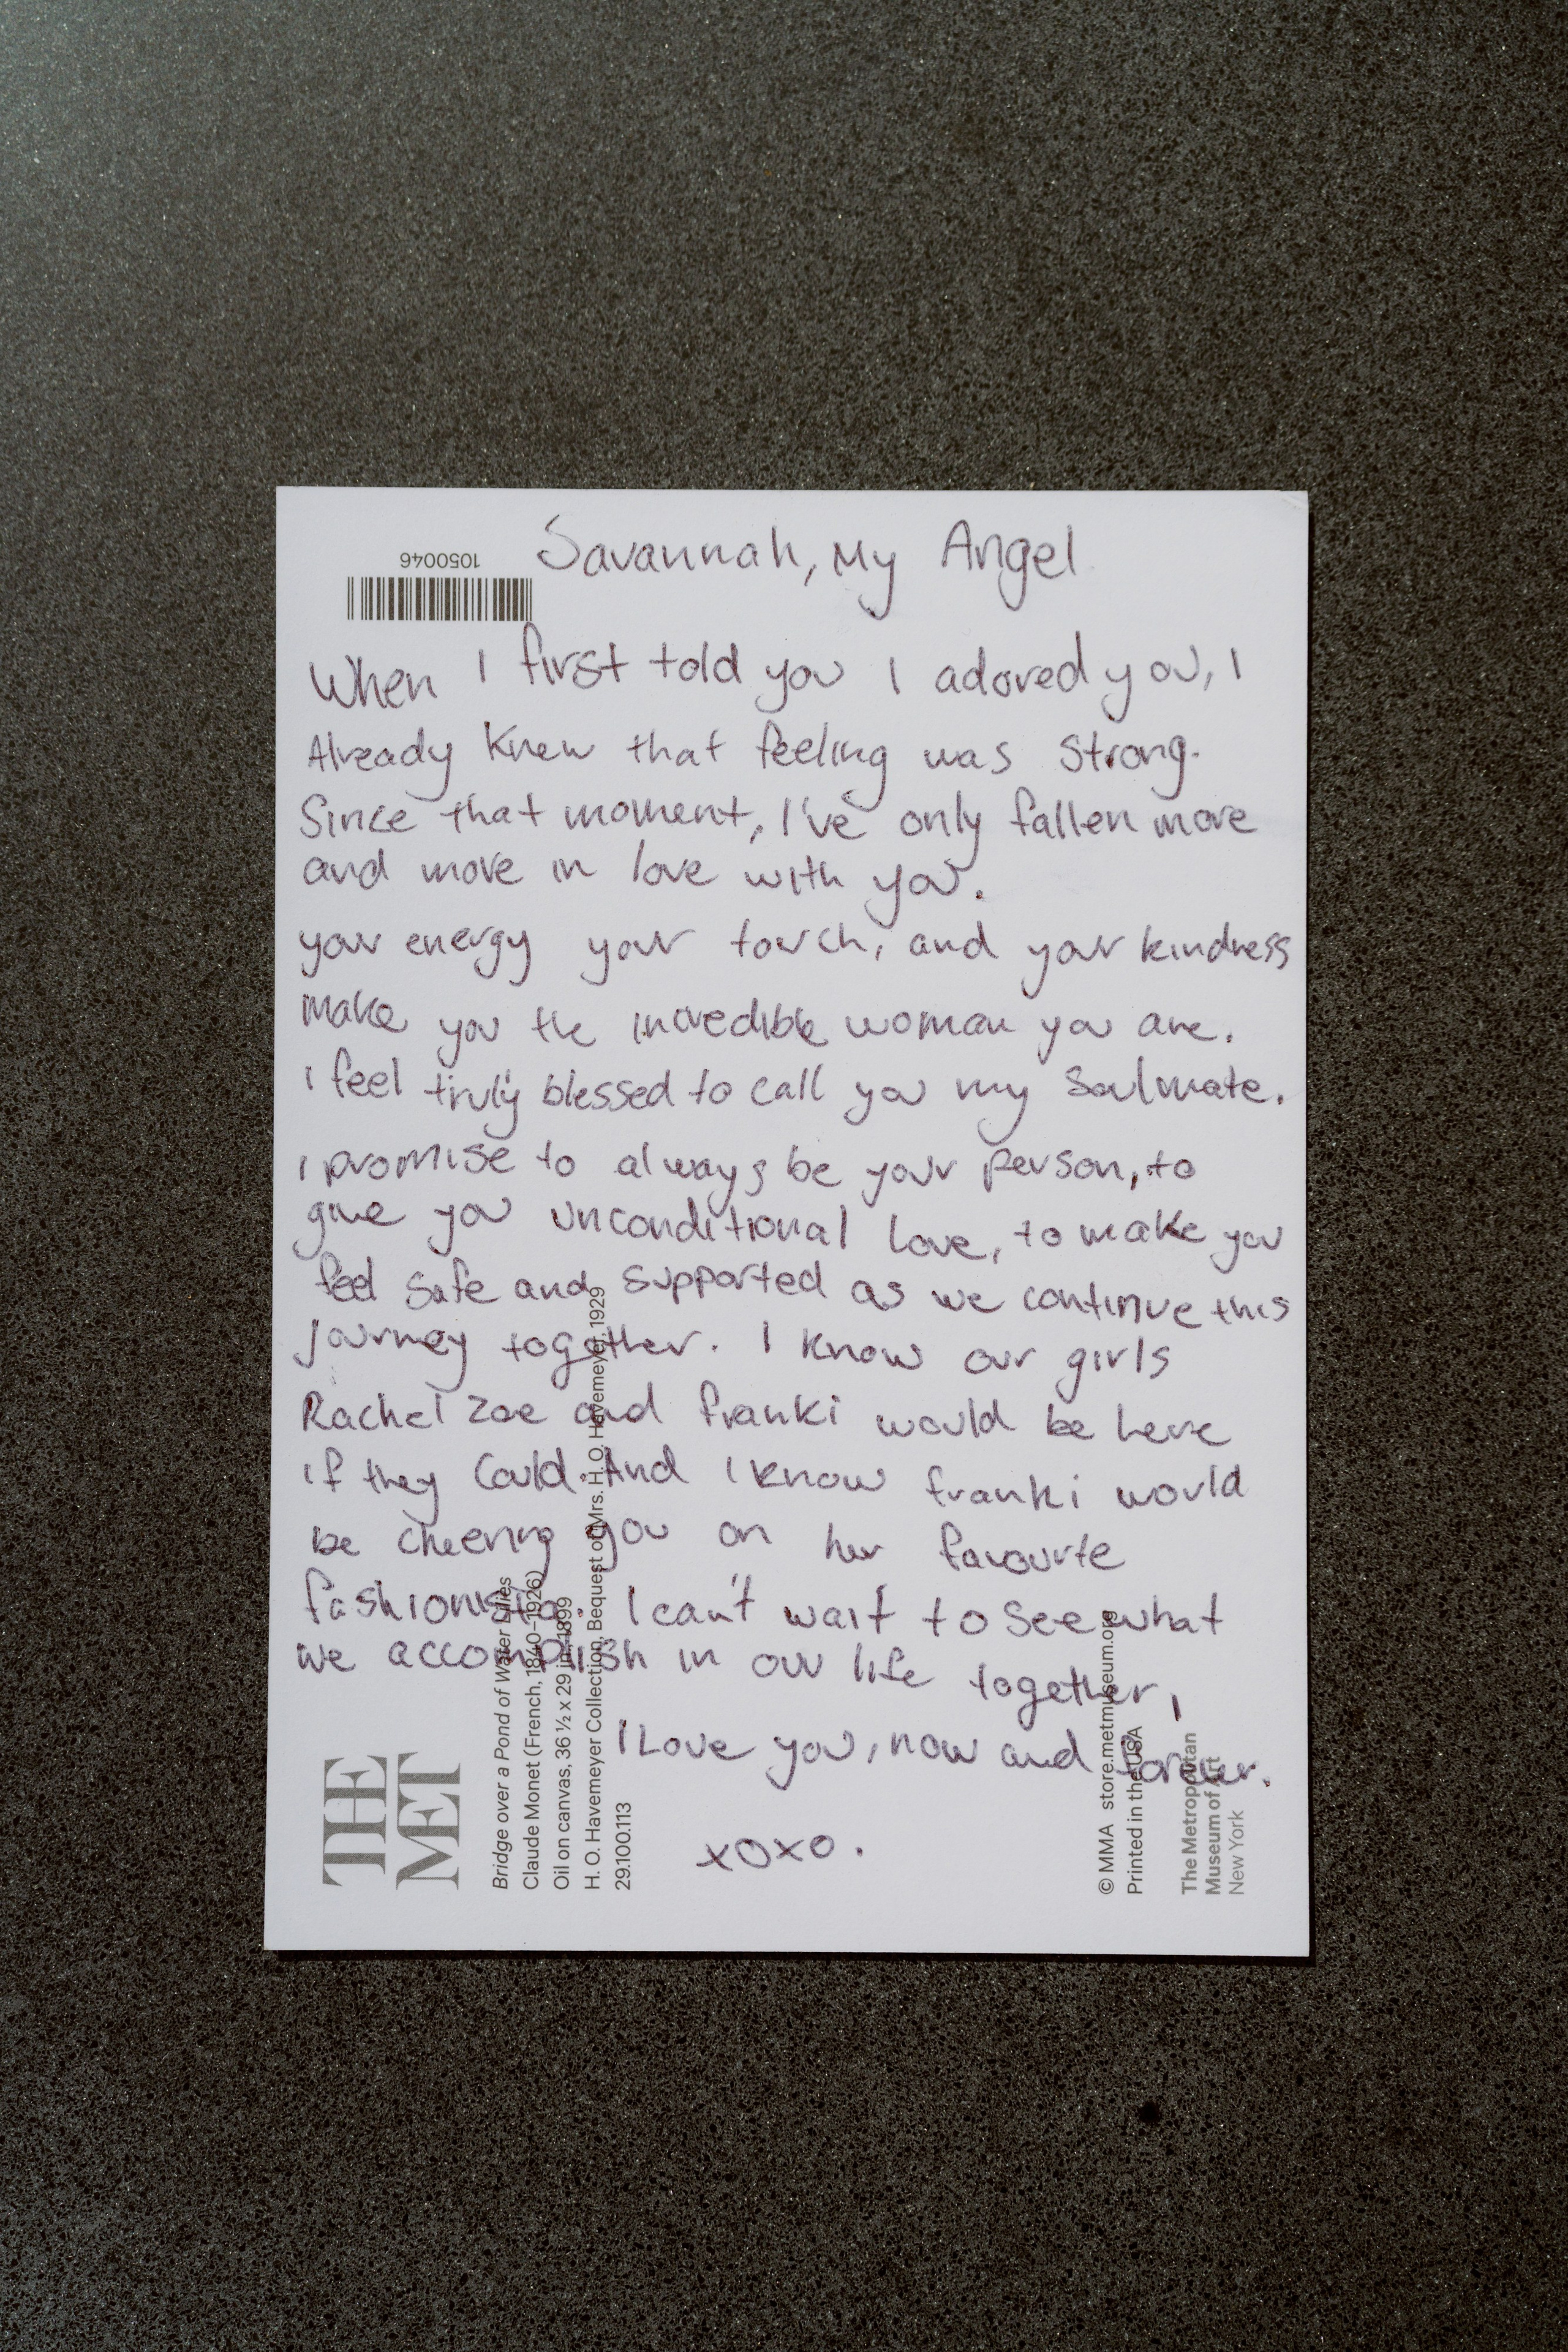 1050046
Savannah, My Angel
When I first told you I adored you, I
Already knew that feeling was Strong.
Since that moment, I've only fallen more
and more in love with you.
your energy your touch, and your kindness
make you the incredible woman you are.
I feel truly blessed to call you my Soulmate.
I promise to always be your person, to
give you unconditional love, to make you
feel safe and supported as we continue this
journey together. I know our girls
Rachel Zoe and franki would be here
if they could. And I know franki would
be cheering you on her favourite
fashionista. I can't wait to see what
we accomplish in our life together,
I Love you, now and forever.
xoxo.
THE
MET
Bridge over a Pond of Water Lilies
Claude Monet (French, 1840–1926)
Oil on canvas, 36 ½ x 29 in., 1899
H. O. Havemeyer Collection, Bequest of Mrs. H. O. Havemeyer, 1929
29.100.113
© MMA store.metmuseum.org
Printed in the USA
The Metropolitan
Museum of Art
New York